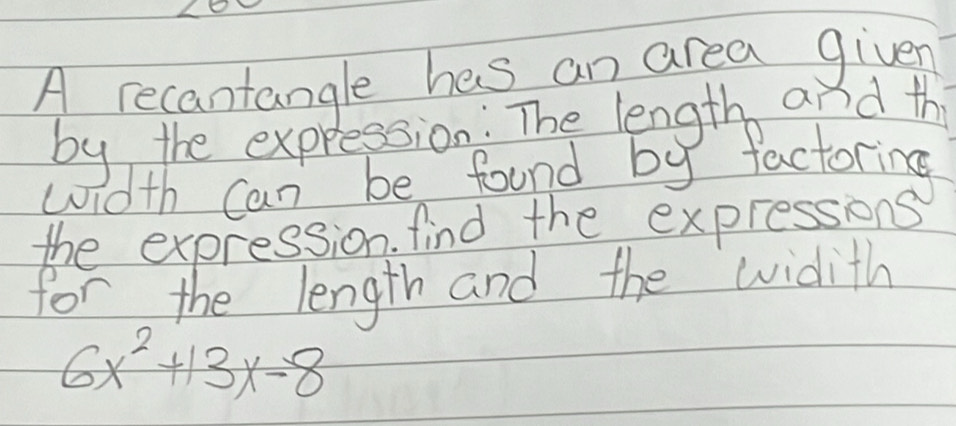 A recantangle has an area given
by the expression: The length and th
width can be found by factoring
the expression. find the expressions
for the length and the widith
6x² +13x-8